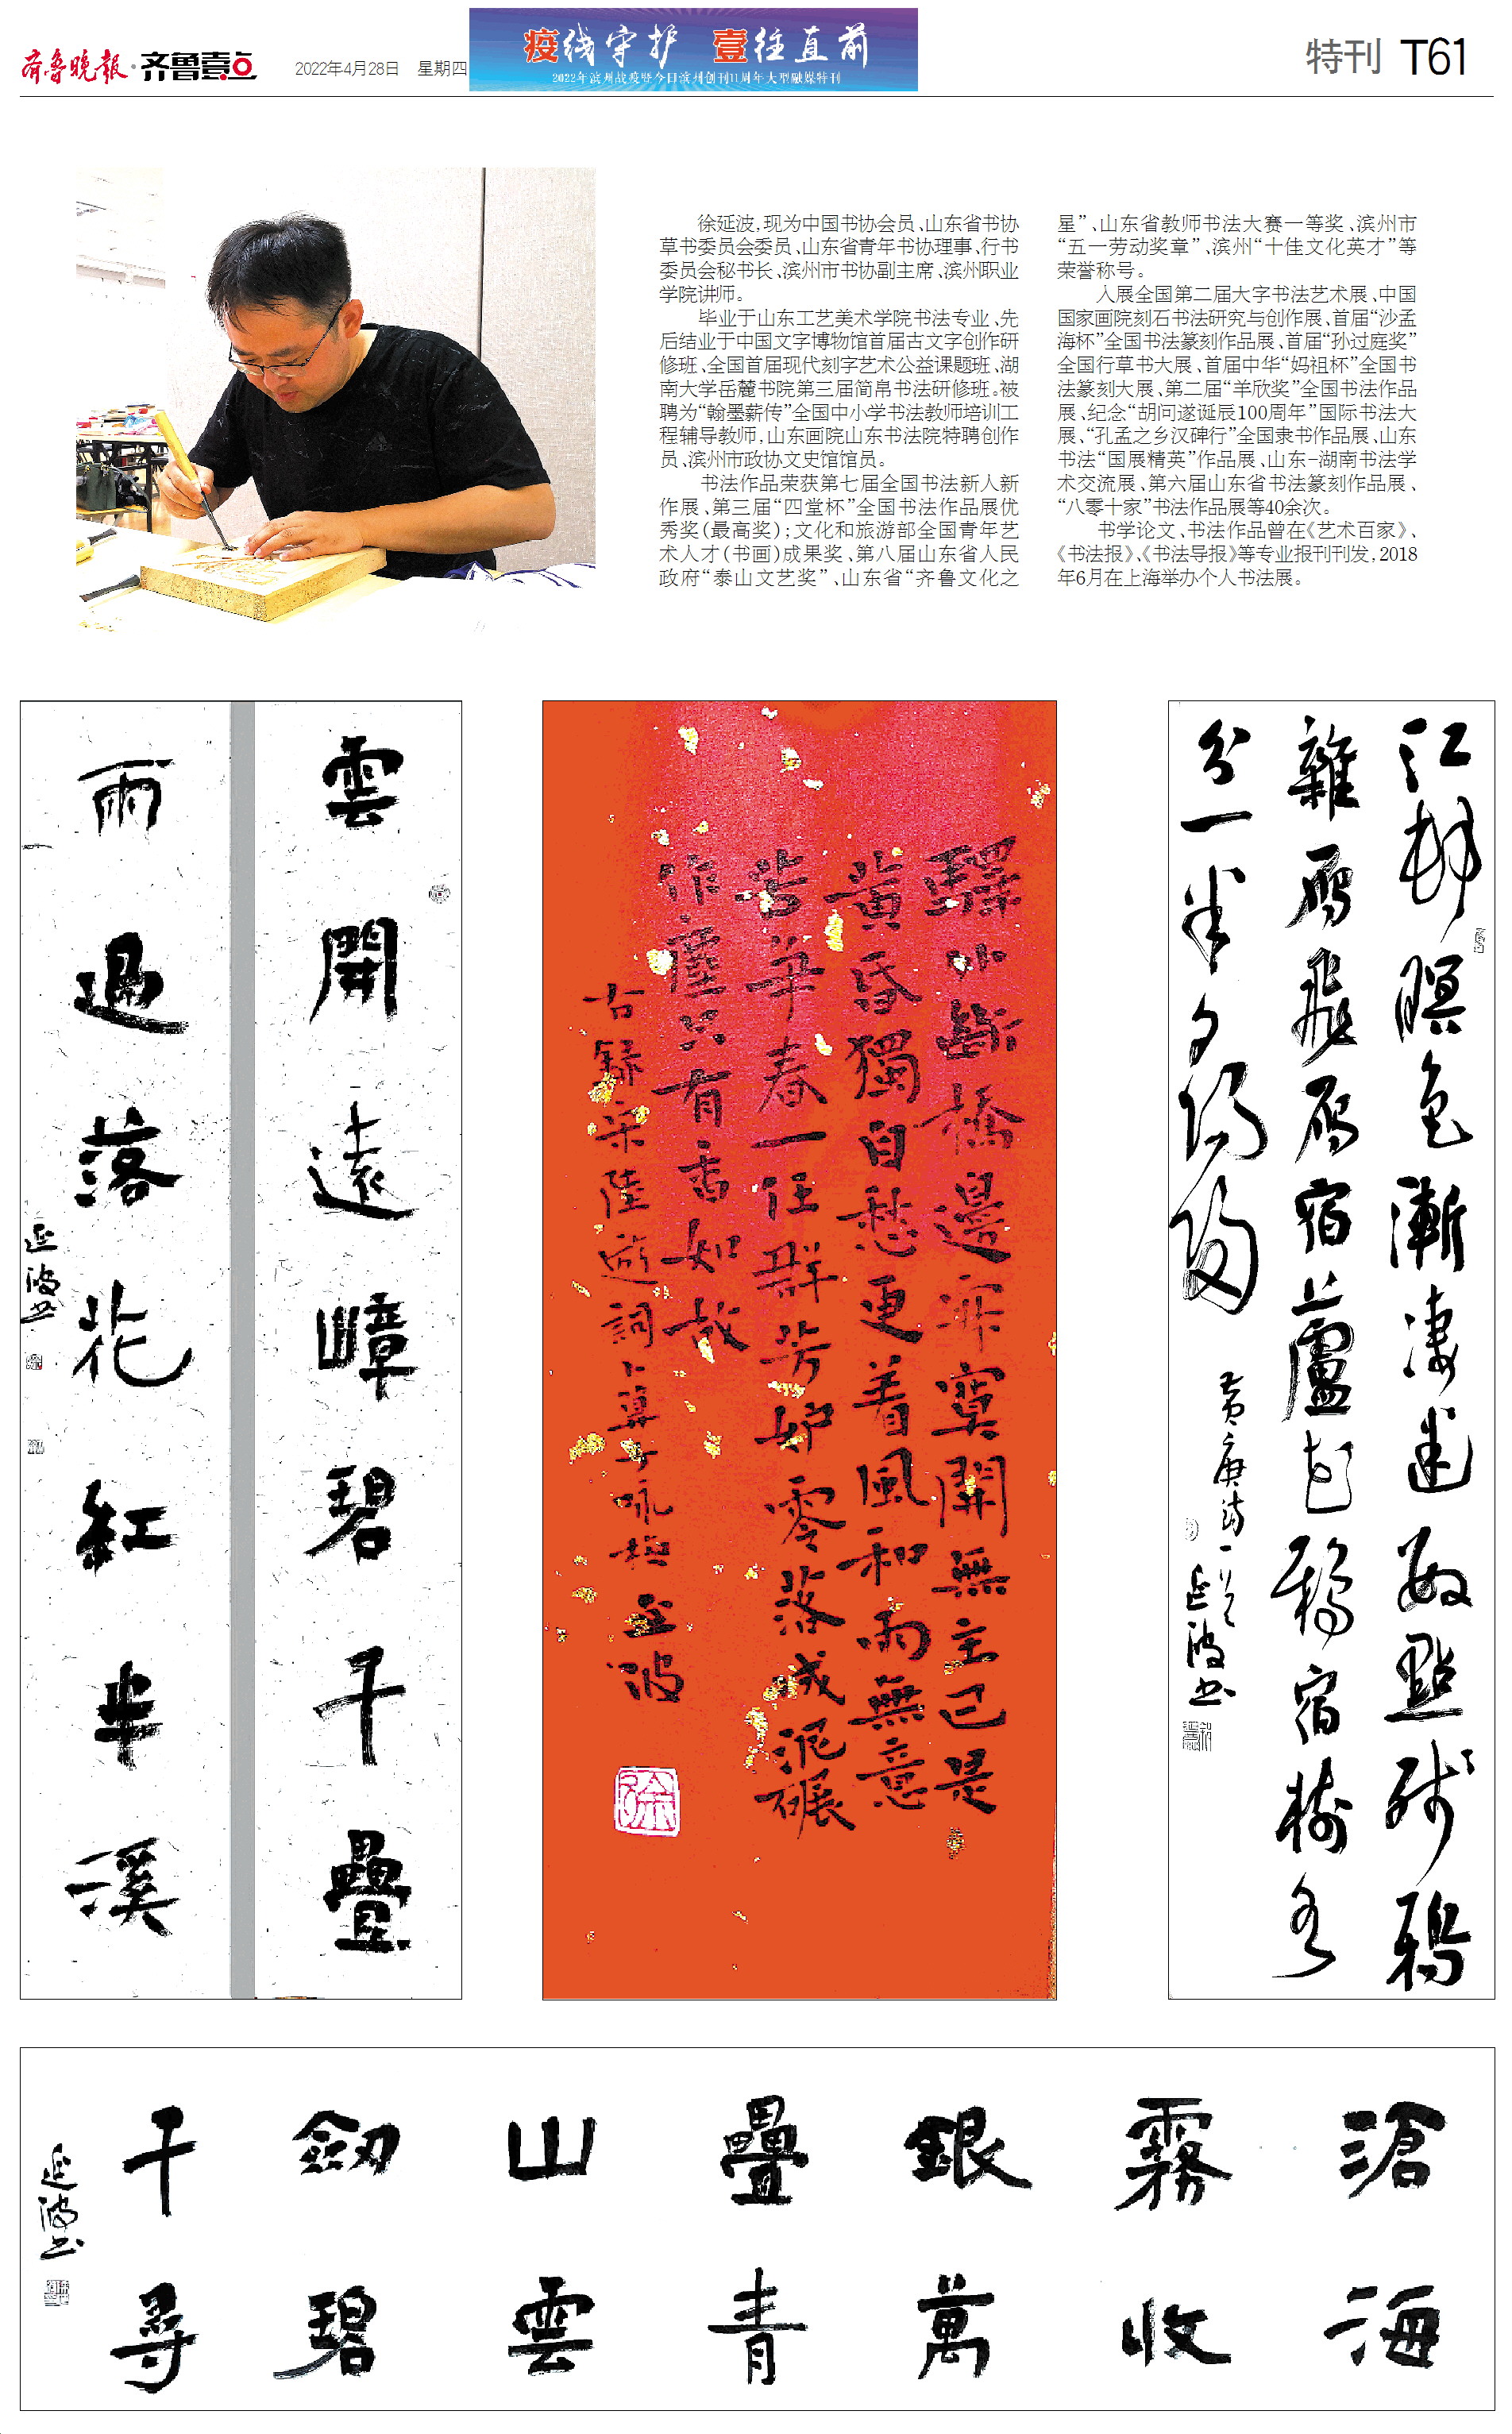 齐鲁晚报·齐鲁壹点
2022年4月28日 星期四
疫线守护 壹往直前
2022年滨州战疫暨今日滨州创刊11周年大型融媒特刊
特刊 T61
徐延波,现为中国书协会员、山东省书协
草书委员会委员、山东省青年书协理事、行书
委员会秘书长、滨州市书协副主席、滨州职业
学院讲师。
毕业于山东工艺美术学院书法专业、先
后结业于中国文字博物馆首届古文字创作研
修班、全国首届现代刻字艺术公益课题班、湖
南大学岳麓书院第三届简帛书法研修班。被
聘为“翰墨薪传”全国中小学书法教师培训工
程辅导教师,山东画院山东书法院特聘创作
员、滨州市政协文史馆馆员。
书法作品荣获第七届全国书法新人新
作展、第三届“四堂杯”全国书法作品展优
秀奖(最高奖);文化和旅游部全国青年艺
术人才(书画)成果奖、第八届山东省人民
政府“泰山文艺奖”、山东省“齐鲁文化之
星”、山东省教师书法大赛一等奖、滨州市
“五一劳动奖章”、滨州“十佳文化英才”等
荣誉称号。
入展全国第二届大字书法艺术展、中国
国家画院刻石书法研究与创作展、首届“沙孟
海杯”全国书法篆刻作品展、首届“孙过庭奖”
全国行草书大展、首届中华“妈祖杯”全国书
法篆刻大展、第二届“羊欣奖”全国书法作品
展、纪念“胡问遂诞辰100周年”国际书法大
展、“孔孟之乡汉碑行”全国隶书作品展、山东
书法“国展精英”作品展、山东-湖南书法学
术交流展、第六届山东省书法篆刻作品展、
“八零十家”书法作品展等40余次。
书学论文、书法作品曾在《艺术百家》、
《书法报》、《书法导报》等专业报刊刊发,2018
年6月在上海举办个人书法展。
雲開遠嶂碧千疊
雨過落花紅半溪
延波书
驛外斷橋邊寂寞開無主已是
黃昏獨自愁更著風和雨無意
苦爭春一任群芳妒零落成泥碾
作塵只有香如故
古錄宋陸遊詞卜算子咏梅 延波
徐
江村暝色漸凄迷數點殘鴉
雜雁飛雁宿蘆花鴉宿樹各
分一半夕陽歸
黄庚诗一首 延波书
滄海
霧收
銀萬
疊青
山雲
劍碧
千尋
延波书